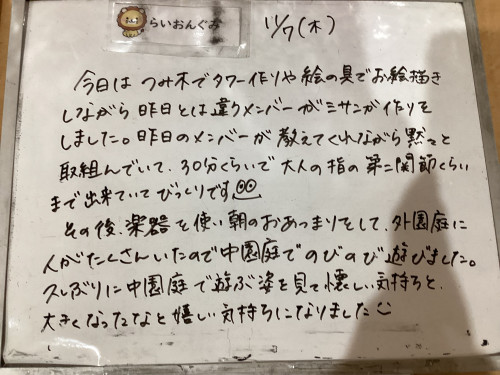 らいおんぐみ
11/7(木)
今日は つみ木でタワー作りや 絵の具でお絵描き
しながら 昨日とは違うメンバーがミサンガ作りを
しました。昨日のメンバーが 教えてくれながら 黙々と
取組んでいて、30分くらいで 大人の指の第二関節くらい
まで出来ていて びっくりです
その後、楽器を使い朝のおあつまりをして、外園庭に
人がたくさんいたので中園庭でのびのび遊びました。
久しぶりに中園庭で遊ぶ姿を見て懐しい気持ちと、
大きくなったなと嬉しい気持ちになりました